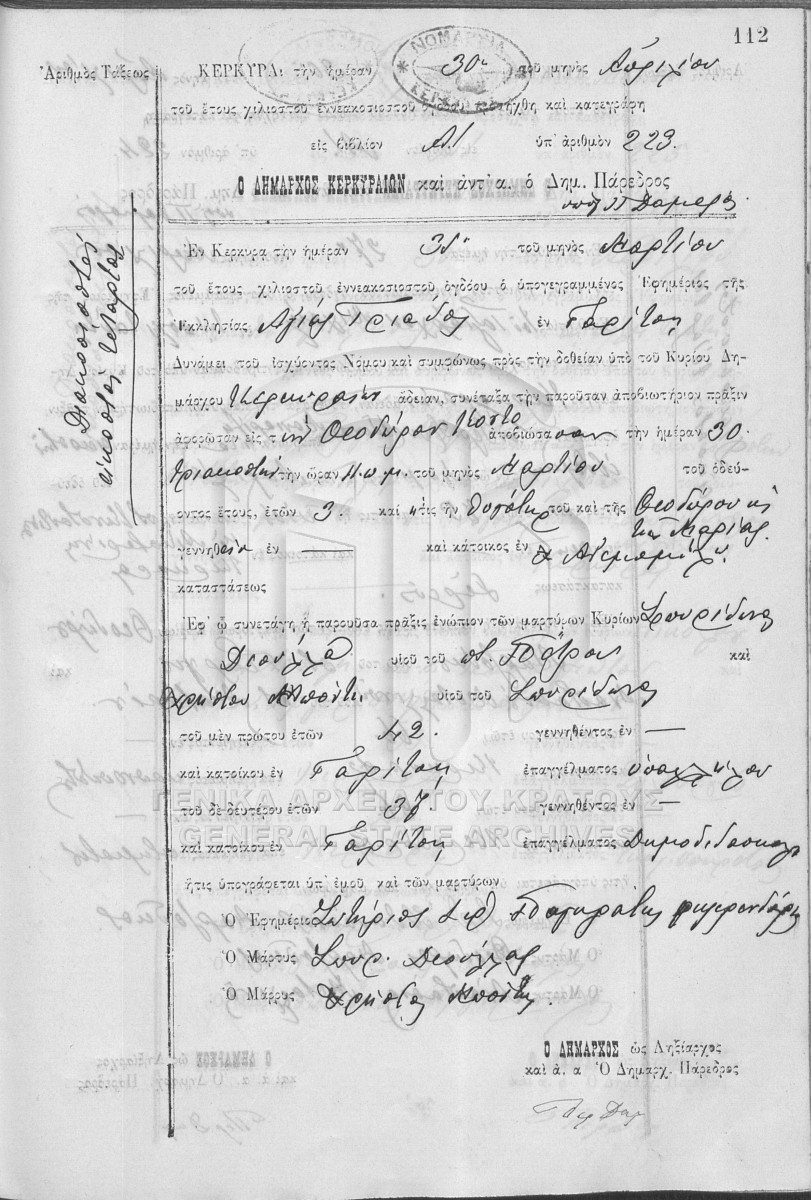 112
Ἀριθμὸς Τάξεως
ΚΕΡΚΥΡΑι τὴν ἡμέραν 30ῃ τοῦ μηνὸς Ἀπριλίου
τοῦ ἔτους χιλιοστοῦ ἐννεακοσιοστοῦ ὀγδόου προσήχθη καὶ κατεγράφη
εἰς βιβλίον Α1 ὑπ' ἀριθμὸν 223.
Ο ΔΗΜΑΡΧΟΣ ΚΕΡΚΥΡΑΙΩΝ καὶ ἀντ' α. ὁ Δημ. Πάρεδρος
Διακοσιοστὸς
εἰκοστὸς τέταρτος
Ἐν Κερκυρα τὴν ἡμέραν 31ῃ τοῦ μηνὸς Μαρτίου
τοῦ ἔτους χιλιοστοῦ ἐννεακοσιοστοῦ ὀγδόου ὁ ὑπογεγραμμένος Ἐφημέριος τῆς
Ἐκκλησίας Ἁγίας Τριάδος ἐν Γαρίτσῃ
Δυνάμει τοῦ ἰσχύοντος Νόμου καὶ συμφώνως πρὸς τὴν δοθεῖσαν ὑπὸ τοῦ Κυρίου Δη-
μάρχου Κερκυραίων ἄδειαν, συνέταξα τὴν παροῦσαν ἀποβιωτήριον πρᾶξιν
ἀφορῶσαν εἰς τὴν Θεοδώραν ἀποβιώσασαν τὴν ἡμέραν 30
τριακοστὴν τὴν ὥραν π.μ. τοῦ μηνὸς Μαρτίου τοῦ ὁδεύ-
οντος ἔτους, ἐτῶν 3. καὶ ἥτις ἦν θυγάτηρ τοῦ καὶ τῆς Θεοδώρου κ
τῆς Μαρίας
γεννηθεῖσα ἐν — καὶ κάτοικος ἐν Ἀνεμομύλῳ
καταστάσεως
Ἐφ' ᾧ συνετάγη ἡ παροῦσα πρᾶξις ἐνώπιον τῶν μαρτύρων Κυρίων Σπυρίδωνος
Ντούλλα υἱοῦ τοῦ π. Πέτρου καὶ
Χρήστου Μπόστη υἱοῦ τοῦ Σπυρίδωνος
τοῦ μὲν πρώτου ἐτῶν 42. γεννηθέντος ἐν —
καὶ κατοίκου ἐν Γαρίτσῃ ἐπαγγέλματος ὑπαλλήλου
τοῦ δὲ δευτέρου ἐτῶν 37. γεννηθέντος ἐν —
καὶ κατοίκου ἐν Γαρίτσῃ ἐπαγγέλματος Δημοδιδασκάλου
ἥτις ὑπογράφεται ὑπ' ἐμοῦ καὶ τῶν μαρτύρων
Ὁ Ἐφημέριος Σωτήριος
Ὁ Μάρτυς Σπυρ. Ντούλλας
Ὁ Μάρτυς Χρῆστος Μπόστης.
Ο ΔΗΜΑΡΧΟΣ ὡς Ληξίαρχος
καὶ ἀ. α Ὁ Δημαρχ. Πάρεδρος
ΝΟΜΑΡΧΙΑ ΚΕΡΚΥΡΑΣ
ΓΕΝΙΚΑ ΑΡΧΕΙΑ ΤΟΥ ΚΡΑΤΟΥΣ
GENERAL STATE ARCHIVES